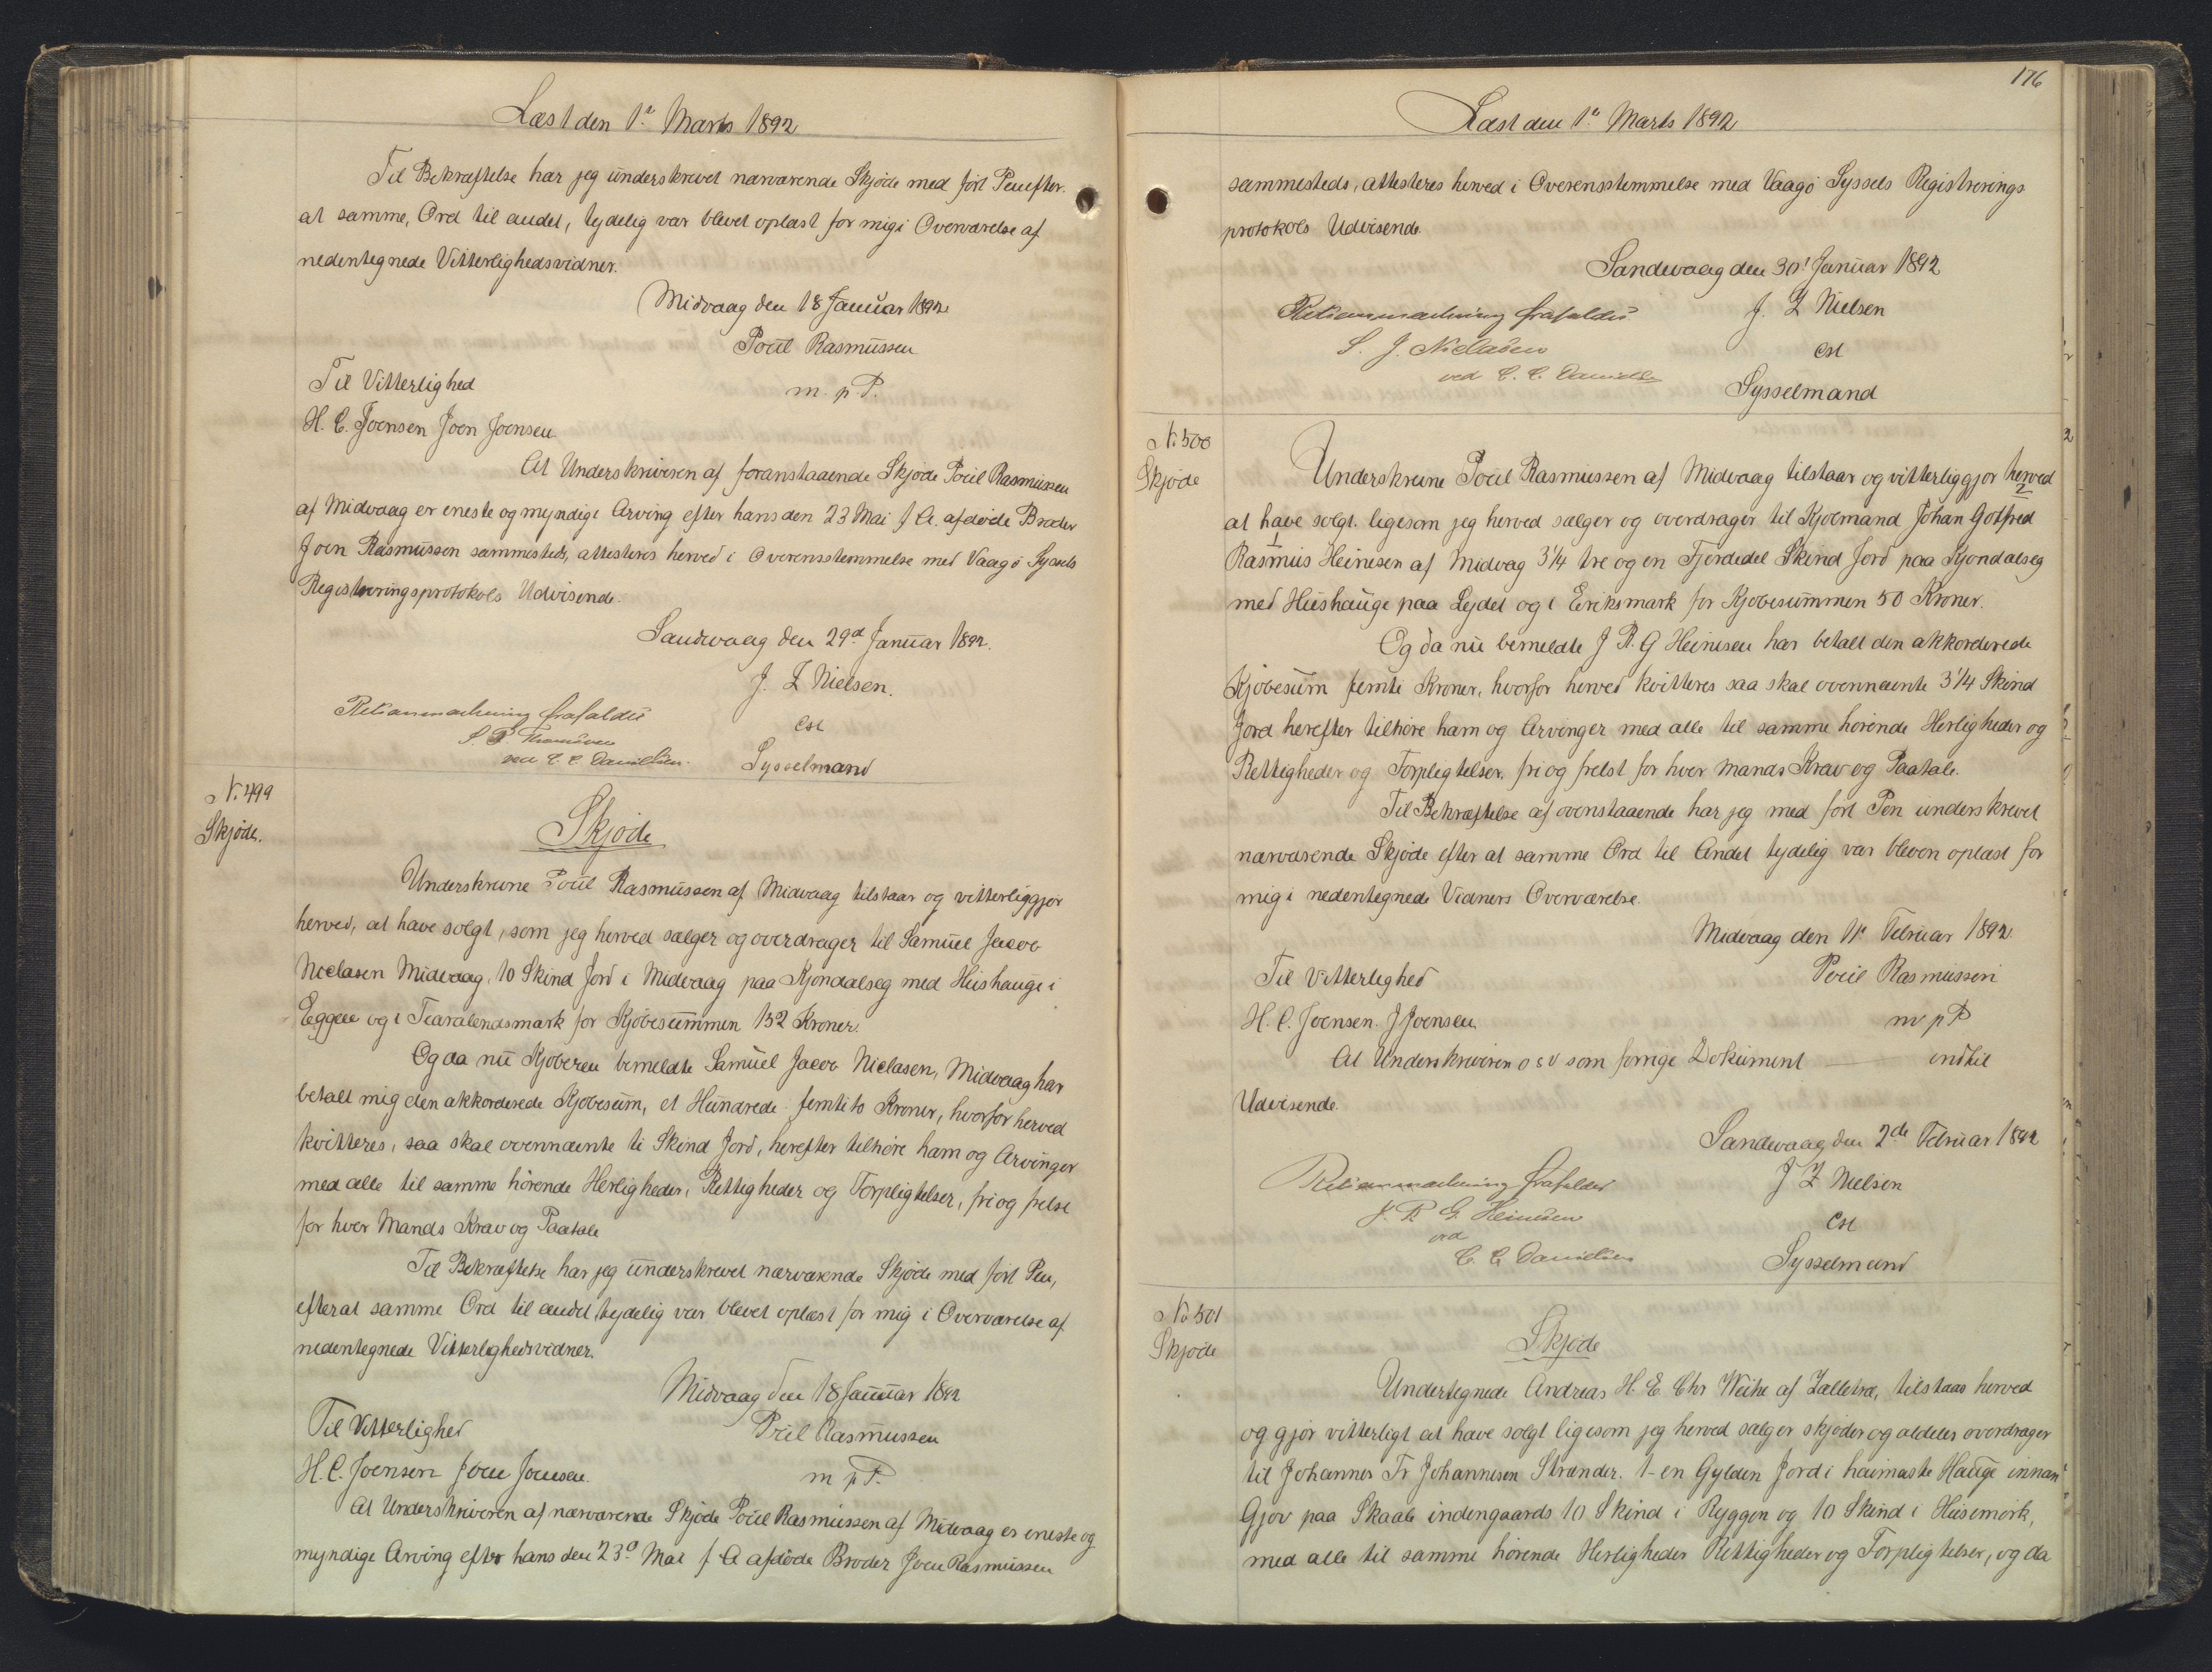 Læst den 1ª Marts 1892
Til Bekræftelse har jeg underskrevet nærværende Skjøde med ført Pen efter
at samme, Ord til andet, tydelig var blevet oplæst for mig i Overværelse af
nedentegnede Vitterlighedsvidner.
Midvaag den 18 Januar 1892
Poul Rasmussen
Til Vitterlighed
m. p. P.
H. C. Joensen Joen Joensen.
At Underskriveren af foranstaaende Skjøde Poul Rasmussen
af Midvaag er eneste og myndige Arving efter hans den 23 Mai f A. afdøde Broder
Joen Rasmussen sammesteds, attesteres herved i Overensstemmelse med Vaagø Syssels
Registreringsprotokols Udvisende.
Sandevaag den 29ᵈ Januar 1892.
J. Z Nielsen.
cst
Sysselmand
ved C. C. Danielsen.
N. 499
Skjøde.
Skjøde
Underskrevne Poul Rasmussen af Midvaag tilstaar og vitterliggjør
herved, at have solgt, som jeg herved sælger og overdrager til Samuel Jacob
Niclasen Midvaag, 10 Skind Jord i Midvaag paa Kjondalseg med Hushauge i
Eggen og i Tearalendsmark for Kjøbesummen 152 Kroner.
Og da nu Kjøberen bemeldte Samuel Jacob Niclasen, Midvaag har
betalt mig den akkorderede Kjøbesum, et Hundrede femti to Kroner, hvorfor herved
kvitteres, saa skal ovennævnte ti Skind Jord, herefter tilhøre ham og Arvinger
med alle til samme hørende Herligheder, Rettigheder og Forpligtelser, fri og frelst
for hver Mands Krav og Paatale
Til Bekræftelse har jeg underskrevet nærværende Skjøde med ført Pen,
efterat samme Ord til andet, tydelig var blevet oplæst for mig i Overværelse af
nedentegnede Vitterlighedsvidner.
Midvaag den 18 Januar 1892
Til Vitterlighed
Poul Rasmussen
H. C. Joensen Joen Joensen.
m p P.
At Underskriveren af nærværende Skjøde Poul Rasmussen af Midvaag er eneste og
myndige Arving efter hans den 23ᵈ Mai f A afdøde Broder Joen Rasmussen
176
Læst den 1ª Marts 1892
sammesteds, attesteres herved i Overensstemmelse med Vaagø Syssels Registrerings
protokols Udvisende.
Sandevaag den 30ᵗ Januar 1892
J. Z Nielsen
S. J. Niclasen
cst
ved C. C. Danielsen
Sysselmand
N. 500
Skjøde
Underskrevne Poul Rasmussen af Midvaag tilstaar og vitterliggjør herved
at have solgt. ligesom jeg herved sælger og overdrager til Kjøbmand Johan Gotfred
Rasmus Heinesen af Midvag 3 1/4 tre og en Fjerdedel Skind Jord paa Kjondalseg
med Hushauge paa Lejdet og i Eriksmark for Kjøbesummen 50 Kroner.
Og da nu bemeldte J R. G Heinesen har betalt den akkorderede
Kjøbesum femti Kroner, hvorfor herved kvitteres saa skal ovennævnte 3 1/4 Skind
Jord herefter tilhøre ham og Arvinger med alle til samme hørende Herligheder og
Rettigheder og Forpligtelser, fri og frelst for hver Mands Krav og Paatale.
Til Bekræftelse af ovenstaaende har jeg med ført Pen underskrevet
nærværende Skjøde efter at samme Ord til Andet tydelig var bleven oplæst for
mig i nedentegnede Vidners Overværelse.
Midvaag den 1ᵗ Februar 1892.
Til Vitterlighed
Poul Rasmussen
H. C. Joensen. J Joensen
m p P
At Underskriveren o s v som forrige Dokument — indtil
Udvisende.
Sandevaag den 2de Februar 1892
J Z Nielsen
J. R. G. Heinesen
cst
ved
C. C. Danielsen
Sysselmand
No 501
Skjøde
Skjøde
Undertegnede Andreas H. E Chr Weihe af Zalletræ, tilstaar herved
og gjør vitterligt at have solgt ligesom jeg herved sælger skjøder og aldeles overdrager
til Johannes Fr Johannesen Strænder. 1- en Gylden Jord i haimaste Hauge innan
Gjov paa Skaale indengaards 10 Skind i Ryggen og 10 Skind i Husemørk,
med alle til samme hørende Herligheder Rettigheder og Forpligtelser, og da